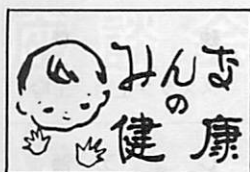 みんな
の
健康